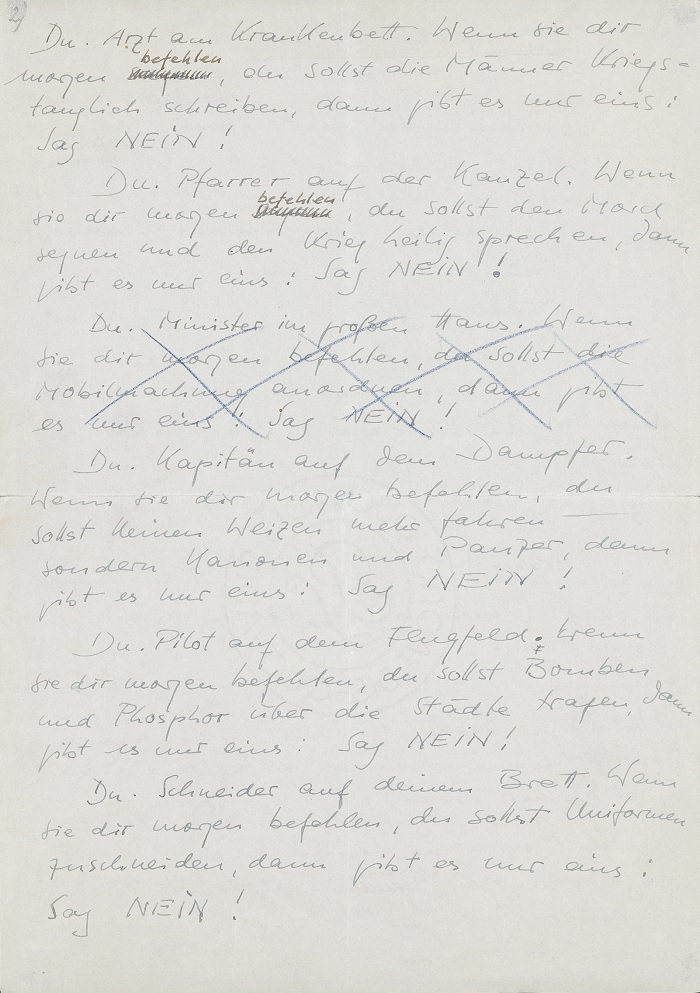 2)
Du. Arzt am Krankenbett. Wenn sie dir
befehlen
morgen , du sollst die Männer kriegs=
tauglich schreiben, dann gibt es nur eins:
Sag NEIN!
Du. Pfarrer auf der Kanzel. Wenn
befehlen
sie dir morgen , du sollst den Mord
segnen und den Krieg heilig sprechen, dann
gibt es nur eins: Sag NEIN!
Du. Minister im großen Haus. Wenn
sie dir morgen befehlen, du sollst die
Mobilmachung anordnen, dann gibt
es nur eins: Sag NEIN!
Du. Kapitän auf dem Dampfer.
Wenn sie dir morgen befehlen, du
sollst keinen Weizen mehr fahren –
sondern Kanonen und Panzer, dann
gibt es nur eins: Sag NEIN!
Du. Pilot auf dem Flugfeld. Wenn
sie dir morgen befehlen, du sollst Bomben
und Phosphor über die Städte tragen, dann
gibt es nur eins: Sag NEIN!
Du. Schneider auf deinem Brett. Wenn
sie dir morgen befehlen, du sollst Uniformen
zuschneiden, dann gibt es nur eins:
Sag NEIN!